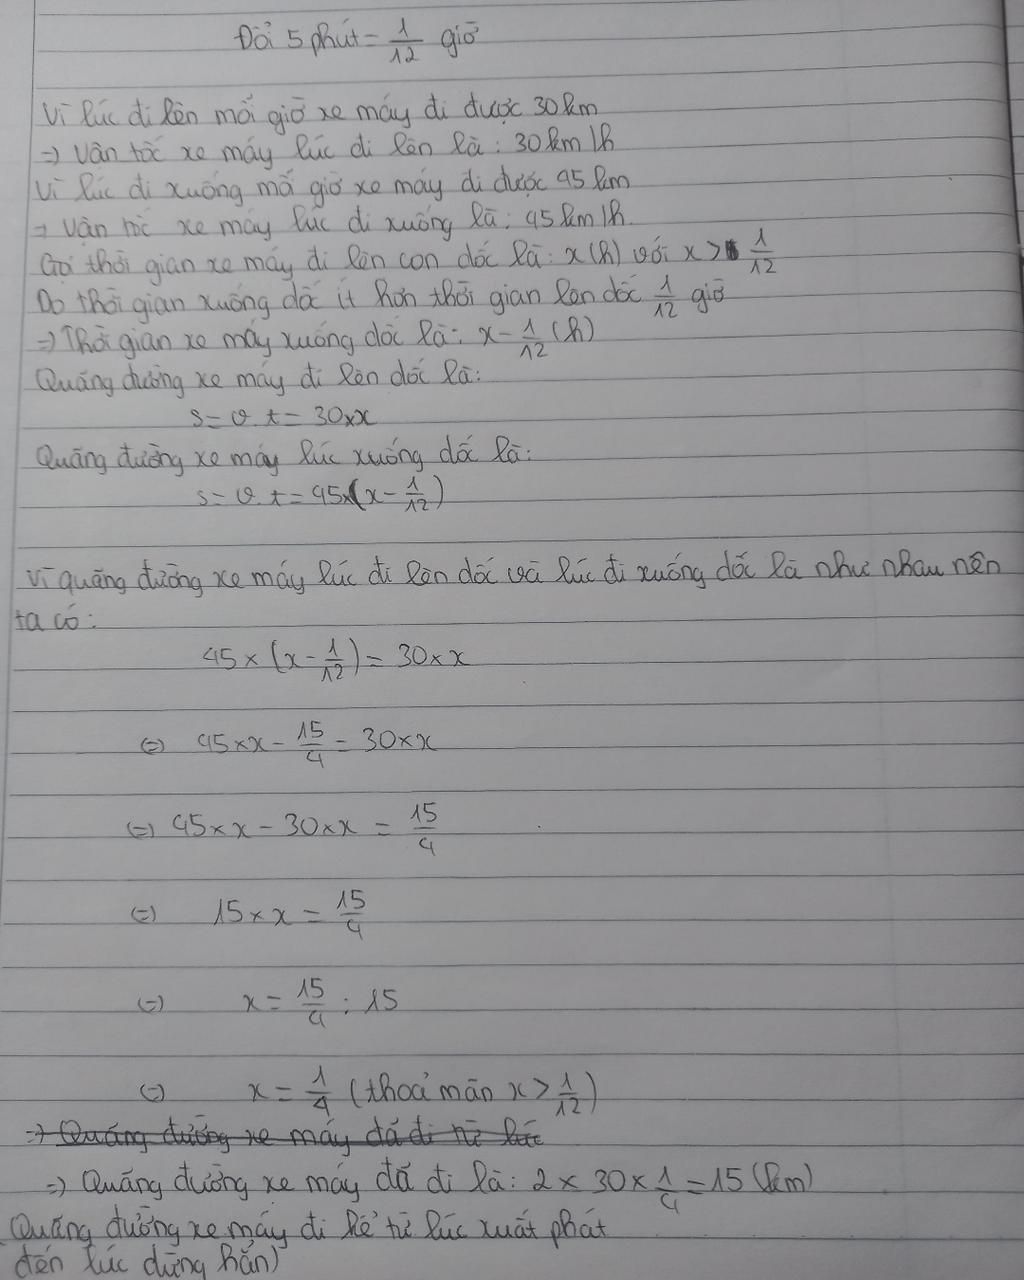 Đổi 5 phút = 1/12 giờ
Vì lúc đi lên mỗi giờ xe máy đi được 30km
=> Vận tốc xe máy lúc đi lên là: 30km/h
Vì lúc đi xuống mỗi giờ xe máy đi được 45km
=> Vận tốc xe máy lúc đi xuống là: 45km/h.
Gọi thời gian xe máy đi lên con dốc là: x(h) với x > 1/12
Do thời gian xuống dốc ít hơn thời gian lên dốc 1/12 giờ
=> Thời gian xe máy xuống dốc là: x - 1/12 (h)
Quãng đường xe máy đi lên dốc là:
s = v.t = 30×x
Quãng đường xe máy lúc xuống dốc là:
s = v.t = 45×(x - 1/12)
Vì quãng đường xe máy lúc đi lên dốc và lúc đi xuống dốc là như nhau nên
ta có:
45×(x - 1/12) = 30×x
(=) 45×x - 15/4 = 30×x
(=) 45×x - 30×x = 15/4
(=) 15×x = 15/4
(=) x = 15/4 : 15
(=) x = 1/4 (thoả mãn x > 1/12)
=> Quãng đường xe máy đã đi từ lúc
=> Quãng đường xe máy đã đi là: 2 × 30 × 1/4 = 15 (km)
Quãng đường xe máy đi kể từ lúc xuất phát
đến lúc dừng hẳn)